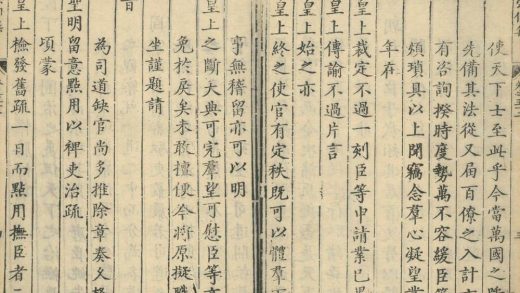 使天下士至此乎今當萬國之
先備其法從又屆百僚之入計
有咨詢揆時度勢萬不容緩臣
煩瑣具以上聞竊念羣心凝望業
年在
皇上裁定不過一刻臣等申請業已
皇上傳諭不過片言
皇上始之亦
皇上終之使官有定秩既可以體羣
事無稽留亦可以明
皇上之斷大典可完羣望可慰臣等
免於戾矣未敢擅便今將原擬職
坐謹題請
旨
為司道缺官尚多推除章奏久
聖明留意點用以裨吏治疏
頃蒙
皇上檢發舊疏一日而點用撫臣者